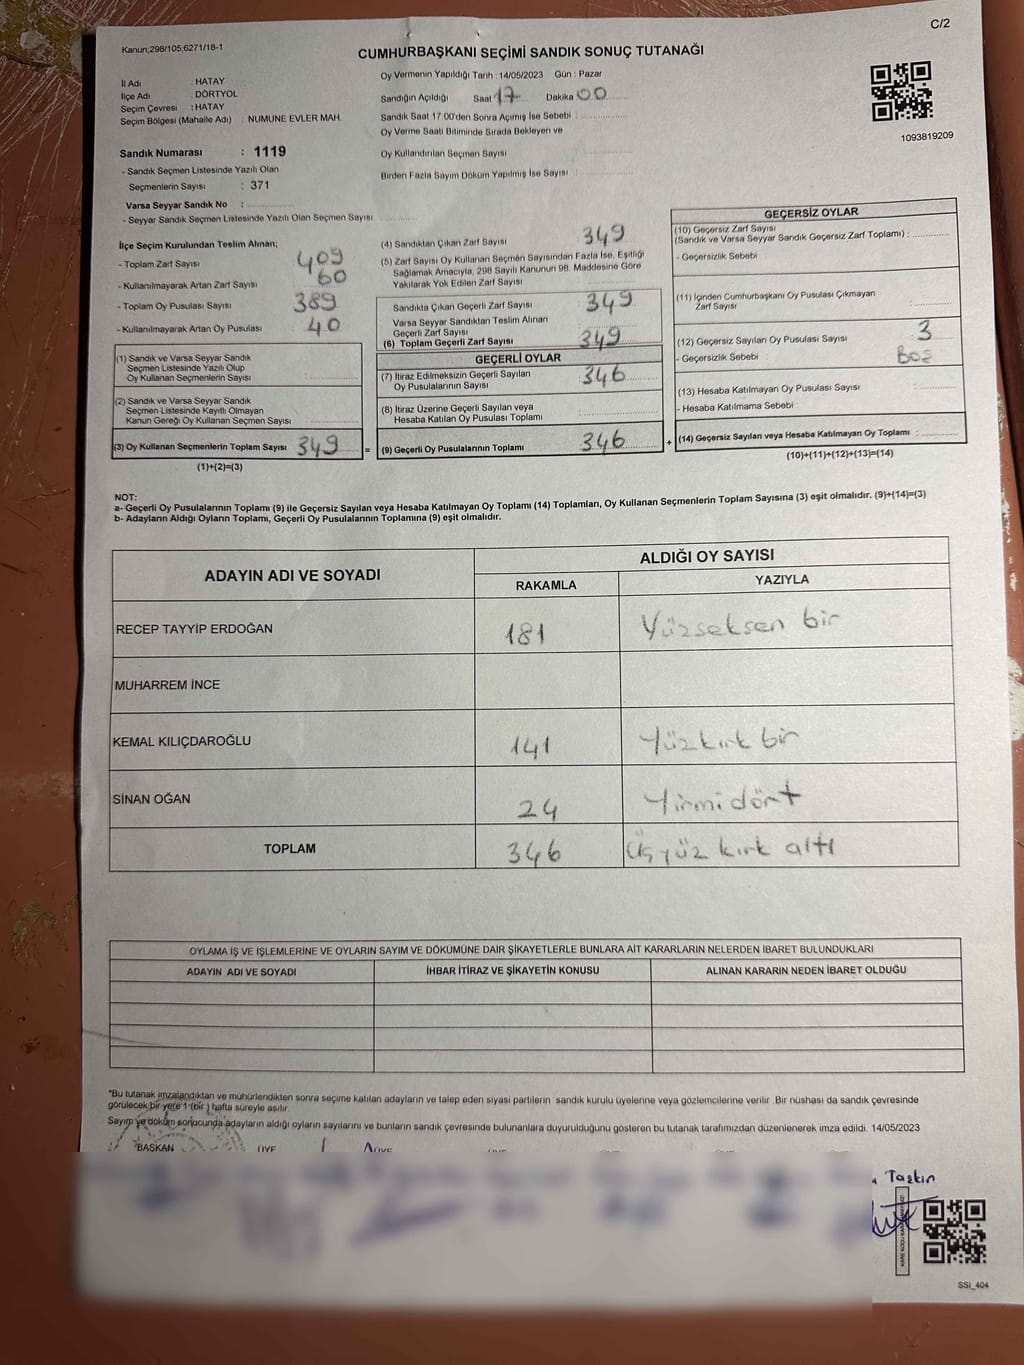 C/2
Kanun;298/105;6271/18-1
CUMHURBAŞKANI SEÇİMİ SANDIK SONUÇ TUTANAĞI
İl Adı : HATAY
İlçe Adı : DÖRTYOL
Seçim Çevresi : HATAY
Seçim Bölgesi (Mahalle Adı) NUMUNE EVLER MAH.
Oy Vermenin Yapıldığı Tarih : 14/05/2023 Gün : Pazar
Sandığın Açıldığı Saat 17 Dakika 00
Sandık Saat 17.00'den Sonra Açımış İse Sebebi :
Oy Verme Saati Bitiminde Sırada Bekleyen ve
Oy Kullandırılan Seçmen Sayısı
Birden Fazla Sayım Döküm Yapılmış İse Sayısı :
1093819209
Sandık Numarası : 1119
- Sandık Seçmen Listesinde Yazılı Olan
Seçmenlerin Sayısı : 371
Varsa Seyyar Sandık No :
- Seyyar Sandık Seçmen Listesinde Yazılı Olan Seçmen Sayısı
İlçe Seçim Kurulundan Teslim Alınan;
- Toplam Zarf Sayısı 409
- Kullanılmayarak Artan Zarf Sayısı 60
- Toplam Oy Pusulası Sayısı 389
- Kullanılmayarak Artan Oy Pusulası 40
(1) Sandık ve Varsa Seyyar Sandık
Seçmen Listesinde Yazılı Olup
Oy Kullanan Seçmenlerin Sayısı :
(2) Sandık ve Varsa Seyyar Sandık
Seçmen Listesinde Kayıtlı Olmayan
Kanun Gereği Oy Kullanan Seçmen Sayısı :
(3) Oy Kullanan Seçmenlerin Toplam Sayısı 349 =
(1)+(2)=(3)
(4) Sandıktan Çıkan Zarf Sayısı 349
(5) Zarf Sayısı Oy Kullanan Seçmen Sayısından Fazla İse, Eşitliği
Sağlamak Amacıyla, 298 Sayılı Kanunun 98. Maddesine Göre
Yakılarak Yok Edilen Zarf Sayısı
Sandıkta Çıkan Geçerli Zarf Sayısı 349
Varsa Seyyar Sandıktan Teslim Alınan
Geçerli Zarf Sayısı
(6) Toplam Geçerli Zarf Sayısı 349
GEÇERLİ OYLAR
(7) İtiraz Edilmeksizin Geçerli Sayılan
Oy Pusulalarının Sayısı 346
(8) İtiraz Üzerine Geçerli Sayılan veya
Hesaba Katılan Oy Pusulası Toplamı :
(9) Geçerli Oy Pusulalarının Toplamı 346 +
GEÇERSİZ OYLAR
(10) Geçersiz Zarf Sayısı
(Sandık ve Varsa Seyyar Sandık Geçersiz Zarf Toplamı) :
- Geçersizlik Sebebi
(11) İçinden Cumhurbaşkanı Oy Pusulası Çıkmayan
Zarf Sayısı :
(12) Geçersiz Sayılan Oy Pusulası Sayısı 3
- Geçersizlik Sebebi : Boş
(13) Hesaba Katılmayan Oy Pusulası Sayısı :
- Hesaba Katılmama Sebebi :
(14) Geçersiz Sayılan veya Hesaba Katılmayan Oy Toplamı :
(10)+(11)+(12)+(13)=(14)
NOT:
a- Geçerli Oy Pusulalarının Toplamı (9) ile Geçersiz Sayılan veya Hesaba Katılmayan Oy Toplamı (14) Toplamları, Oy Kullanan Seçmenlerin Toplam Sayısına (3) eşit olmalıdır. (9)+(14)=(3)
b- Adayların Aldığı Oyların Toplamı, Geçerli Oy Pusulalarının Toplamına (9) eşit olmalıdır.
ADAYIN ADI VE SOYADI ALDIĞI OY SAYISI
RAKAMLA YAZIYLA
RECEP TAYYİP ERDOĞAN 181 Yüzseksen bir
MUHARREM İNCE
KEMAL KILIÇDAROĞLU 141 Yüzkırk bir
SİNAN OĞAN 24 Yirmi dört
TOPLAM 346 Üçyüz kırk altı
OYLAMA İŞ VE İŞLEMLERİNE VE OYLARIN SAYIM VE DÖKÜMÜNE DAİR ŞİKAYETLERLE BUNLARA AİT KARARLARIN NELERDEN İBARET BULUNDUKLARI
ADAYIN ADI VE SOYADI İHBAR İTİRAZ VE ŞİKAYETİN KONUSU ALINAN KARARIN NEDEN İBARET OLDUĞU
*Bu tutanak imzalandıktan ve mühürlendikten sonra seçime katılan adayların ve talep eden siyasi partilerin sandık kurulu üyelerine veya gözlemcilerine verilir .Bir nüshası da sandık çevresinde
görülecek bir yere 1 (bir) hafta süreyle asılır.
Sayım ve döküm sonucunda adayların aldığı oyların sayılarını ve bunların sandık çevresinde bulunanlara duyurulduğunu gösteren bu tutanak tarafımızdan düzenlenerek imza edildi. 14/05/2023
BAŞKAN ÜYE ÜYE
Taşkın
SSI_404